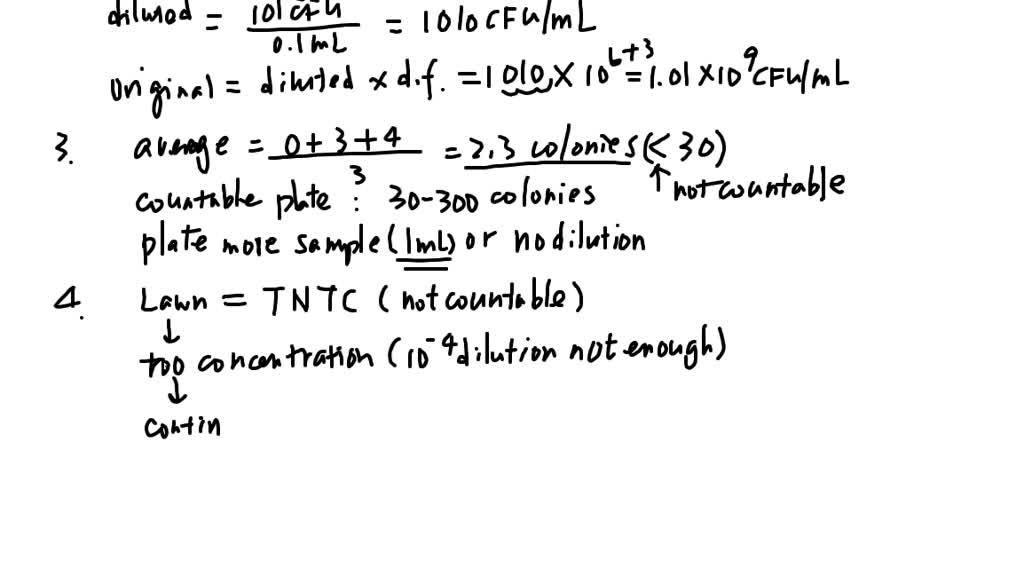 diluted = 101 CFU / 0.1mL = 1010 CFU/mL
original = diluted × d.f. = 1010 × 10^6+3 = 1.01 × 10^9 CFU/mL
3. average = 0+3+4 / 3 = 2.3 colonies (< 30)
countable plate : 30-300 colonies ↑ not countable
plate more sample (1mL) or no dilution
4. Lawn = TNTC (not countable)
↓
too concentration (10^-4 dilution not enough)
↓
contin